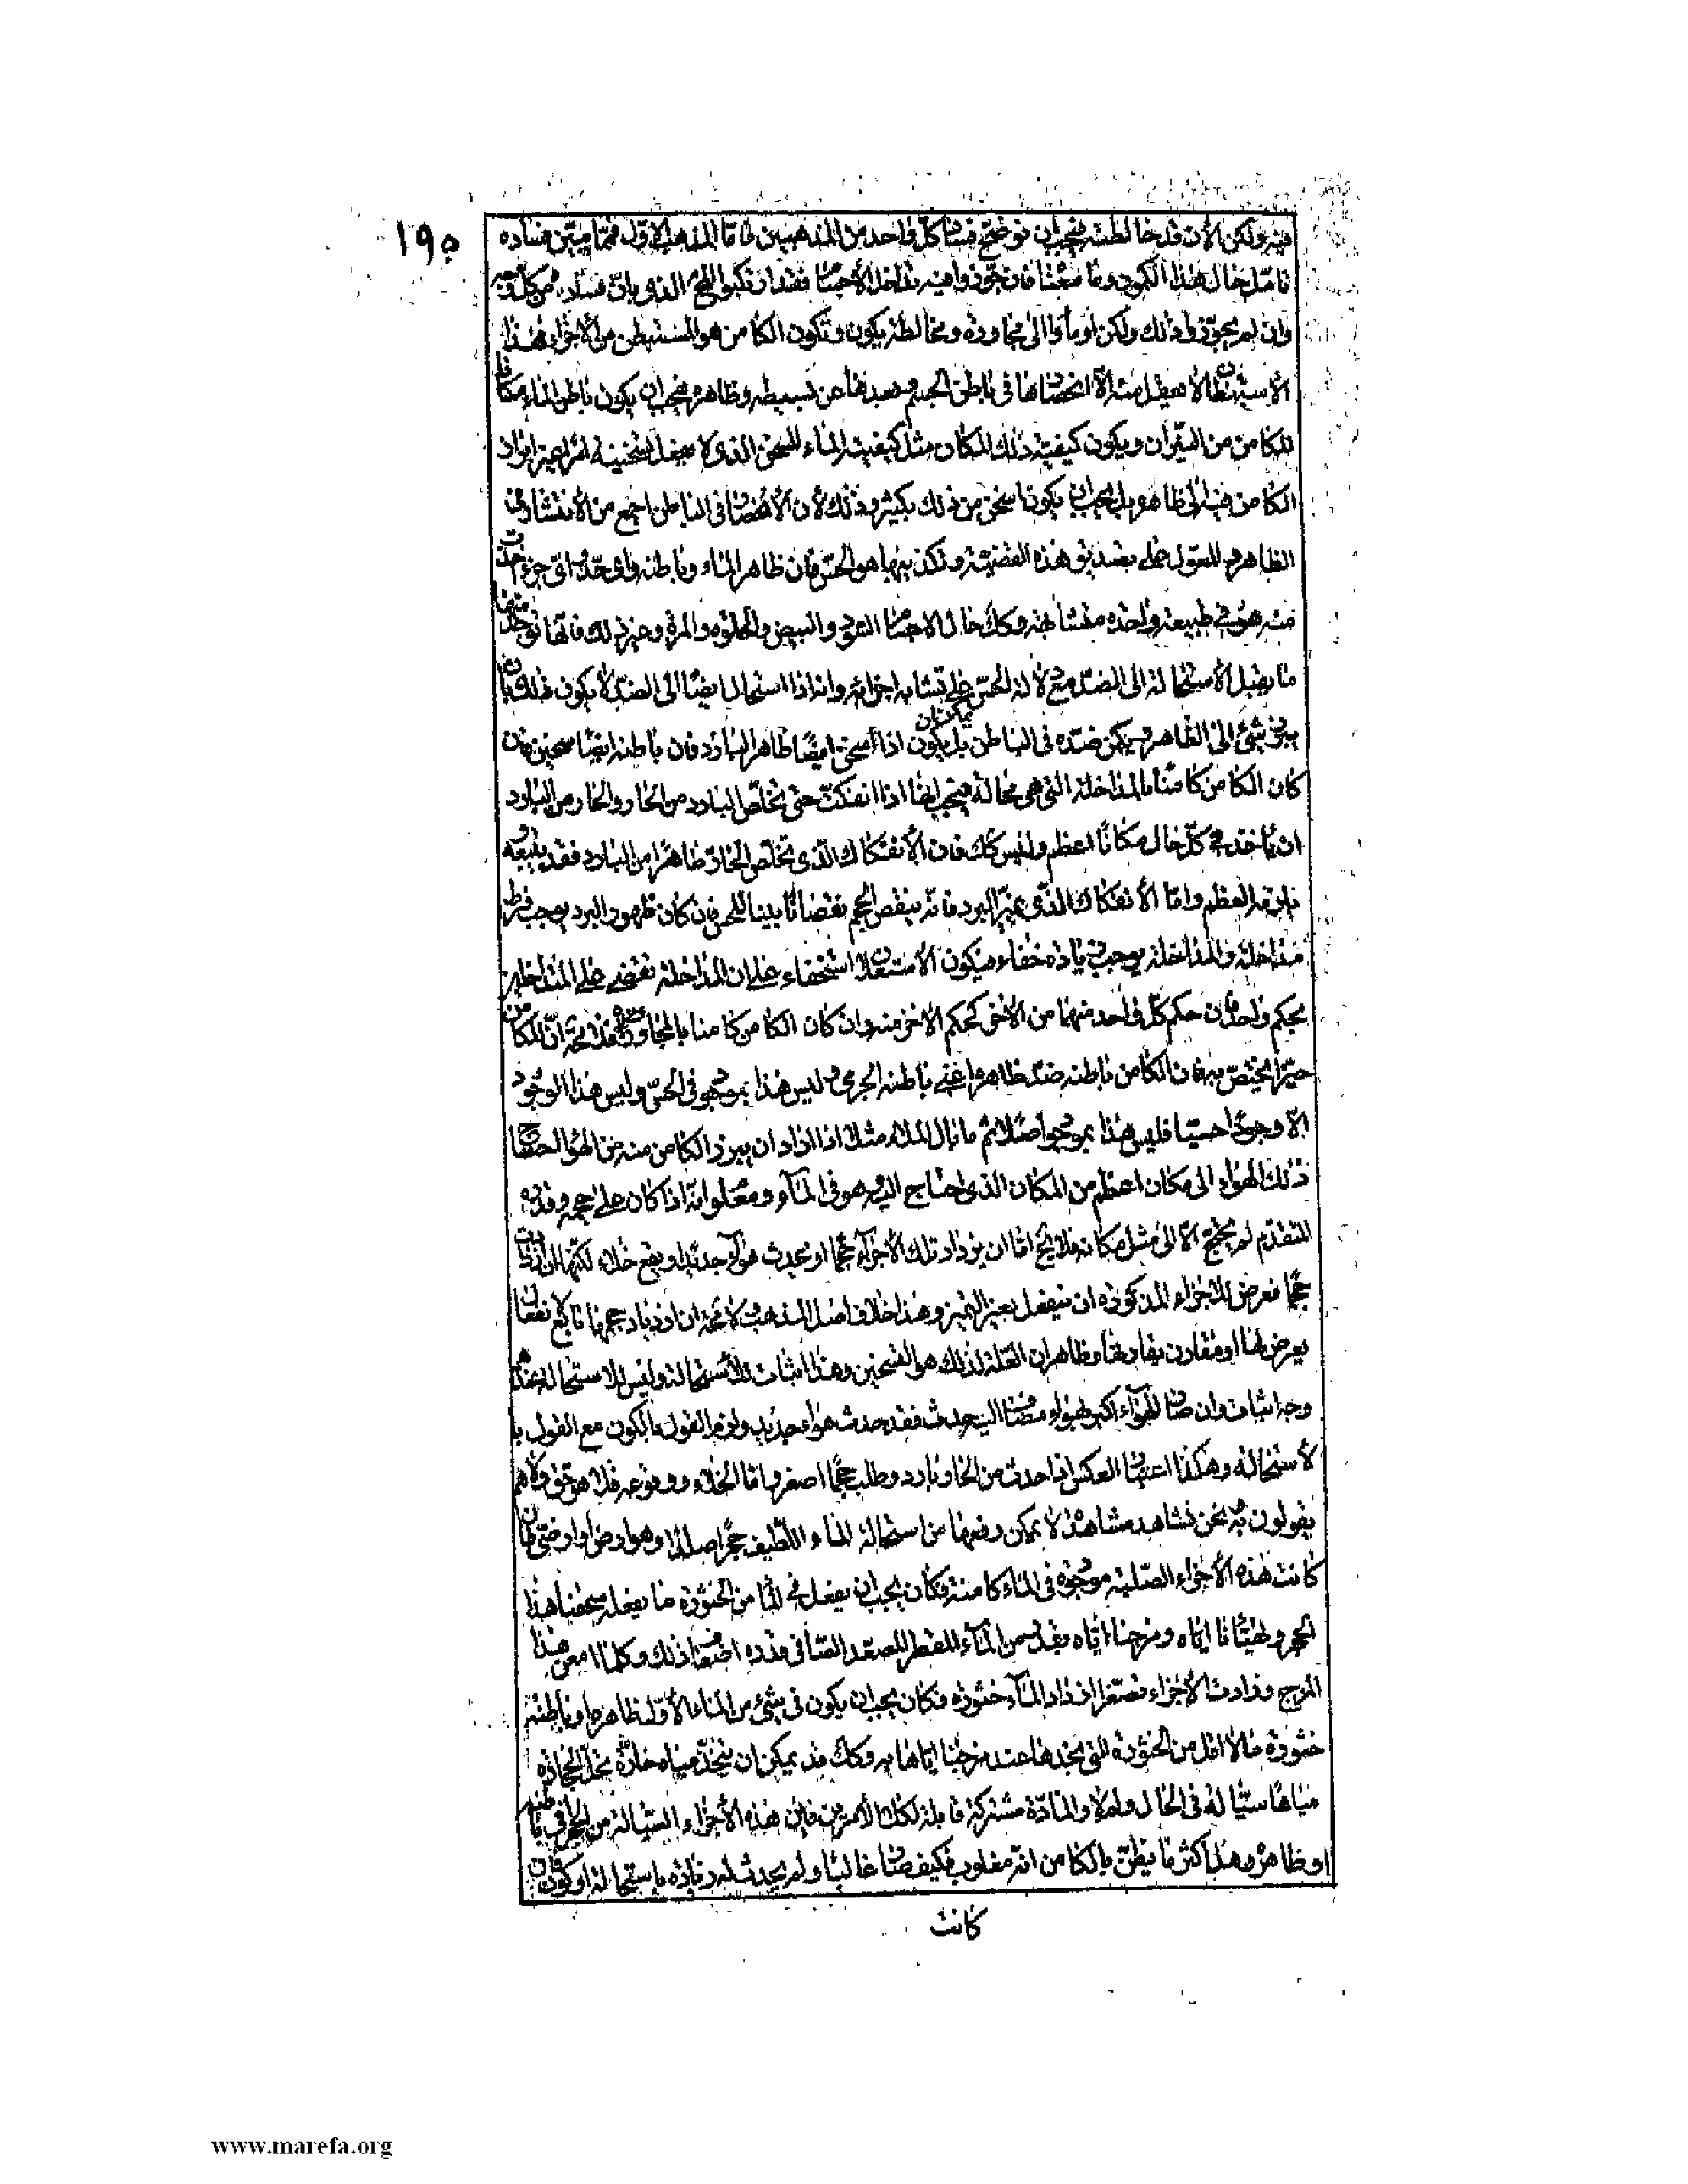 ١٩٥
فيه ولكن لأن قد خالطته فيجب ان نوضح فساد كل واحد من المذهبين فاما المذهب الاول فمما يبين فساده
تأمل حال هذا الكمون وما معناه فان جوزوا فيه تداخل الأجسام فقد ارتكبوا المحال الذى بان فساده من كل وجه
وان لم يجوزوا ذلك ولكن اوماوا الى مجاورة ومخالطة يكون وتكون الكامن هو المستبطن من الأجزاء فهذا
الأستبطان لا يعقل منه الا انحصارها فى باطن الجسم وبعدها عن بسيطه وظاهره فيجب ان يكون باطن الماء مكانا
للكامن من النيران ويكون كيفية ذلك المكان مثل كيفية الماء المسخن الذى لا يفعل تسخينه امرا غير ابراز
الكامن فيه الى ظاهره بل يجب ان يكون اسخن من ذلك بكثير وذلك لأن الأنحصار فى الباطن اجمع من الأنتشار فى
الظاهر والمعول على تصديق هذه القضية وتكذيبها هو الحس فان ظاهر الماء وباطنه واى حد واى جزء اخذت
منه هو فى طبيعة واحدة متشابهة وكك حال الاجسام السود والبيض والحلوة والمرة وغير ذلك فانها توجد منها
ما يقبل الأستحالة الى الضد مع دلالة الحس على تشابه اجزائه وانه اذا استحال ايضا الى الضد لا يكون ذلك بأن
يبرز شيئ الى الظاهر ويكمن ضده فى الباطن بل يكون اذا اسخن ايضا ظاهر البارد فان باطنه ايضا سخين فان
كان الكامن كامنا بالمداخلة التى هى محالة فيجب ايضا اذا انفكت حتى تخلص البارد من الحار والحار من البارد
ان يأخذ فى كل حال مكانا اعظم وليس كك فان الأنفكاك الذى يخلص الحار ظاهرا من البارد فقد يتبعه
زيادة العظم واما الأنفكاك الذى يميز البرد فانه ينقص الحجم نقصانا بينا للحس فان كان ظهور البرد يوجب فرط
مداخلة والمداخلة يوجب زيادة خفاء فيكون الاستعلان استخفاء على ان المداخلة تقضى على المتداخلين
بحكم واحد فان حكم كل واحد منهما من الآخر كحكم الآخر منه وان كان الكامن كامنا بالمجاورة فلا محة ان للكامن
حيزا يختص به فان الكامن باطنه ضد ظاهره اعنى باطنه الجرمى وليس هذا بموجود فى الحس وليس هذا الوجود
الا وجودا حسيا فليس هذا بموجود اصلا ثم ما بال الماء مثلا اذا اراد ان يبرز الكامن منه من الهواء احتاج
ذلك الهواء الى مكان اعظم من المكان الذى احتاج اليه وهو فى الماء ومعلوم انه اذا كان على حجمه وقدره
المتقدم لم يحتج الا الى مثل مكانه فلا يخ اما ان يزداد تلك الأجزاء حجما او يحدث هواء جديد او يقع خلاء لكنها ان ازدادت
حجما فعرض للأجزاء المذكورة ان ينفعل بغير التميز وهذا خلاف اصل المذهب لا محة ان ازدياد حجمها تابع لانفعال
يعرض لها او مقارن يقارنها وظاهر ان العلة لذلك هو التسخين وهذا اثبات للأستحالة وليس للاستحالة عندهم
وجه اثبات وان صار للهواء اكبر بهواء مضاف اليه حدث فقد حدث هواء جديد ولزم القول بالكون مع القول با
لأستحالة وهكذا اعتبار العكس اذا حدث من الحار بارد وطلب حجما اصغر واما الخلاء ووقوعه فلا هو حق ولا هم
يقولون به ثم نحن نشاهد مشاهدة لا يمكن دفعها من استحالة الماء اللطيف حجرا صلدا وهو ارض او ارضى فان
كانت هذه الأجزاء الصلبة موجودة فى الماء كامنة فكان يجب ان يفعل فى الماء من الخثورة ما يفعله سحقنا هذا
الحجر وتهيئانا اياه ومزجنا اياه بقدر من الماء المقطر المصعد الصافى قدره اضعاف ذلك وكلما امعن هذا
المزج وزادت الأجزاء تصغرا ازداد الماء خثورة فكان يجب ان يكون فى شيئ من الماء الأول ظاهره او باطنه
خثورة ما لا اقل من الخثورة التى نجدها عند مزجنا اياها به وكك قد يمكن ان يتخذ مياه حادة تحل الحجارة
مياها سيالة فى الحال ولولا ان المادة مشتركة قابلة لكلا الأمرين فاين هذه الأجزاء السيالة من الحجر فى باطنه
او ظاهره وهذا اكثر ما يظن بالكامن انه مغلوب فكيف صار غالبا ولم يحدث له زيادة باستحالة او كون فان
كانت
www.marefa.org